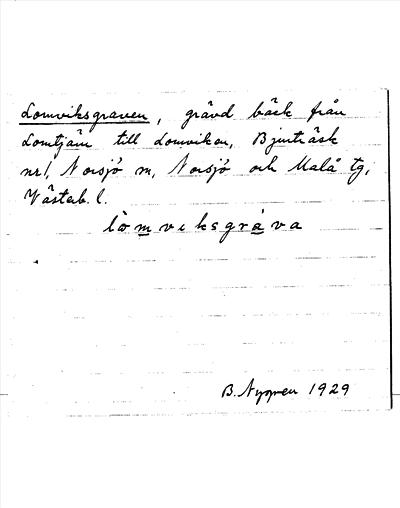 Lomviksgraven, grävd bäck från
Lomtjärn till Lomviken, Bjurträsk
nr1, Norsjö sn, Norsjö och Malå tg,
Västerb. l.
lòmviksgráva
B. Nygren 1929